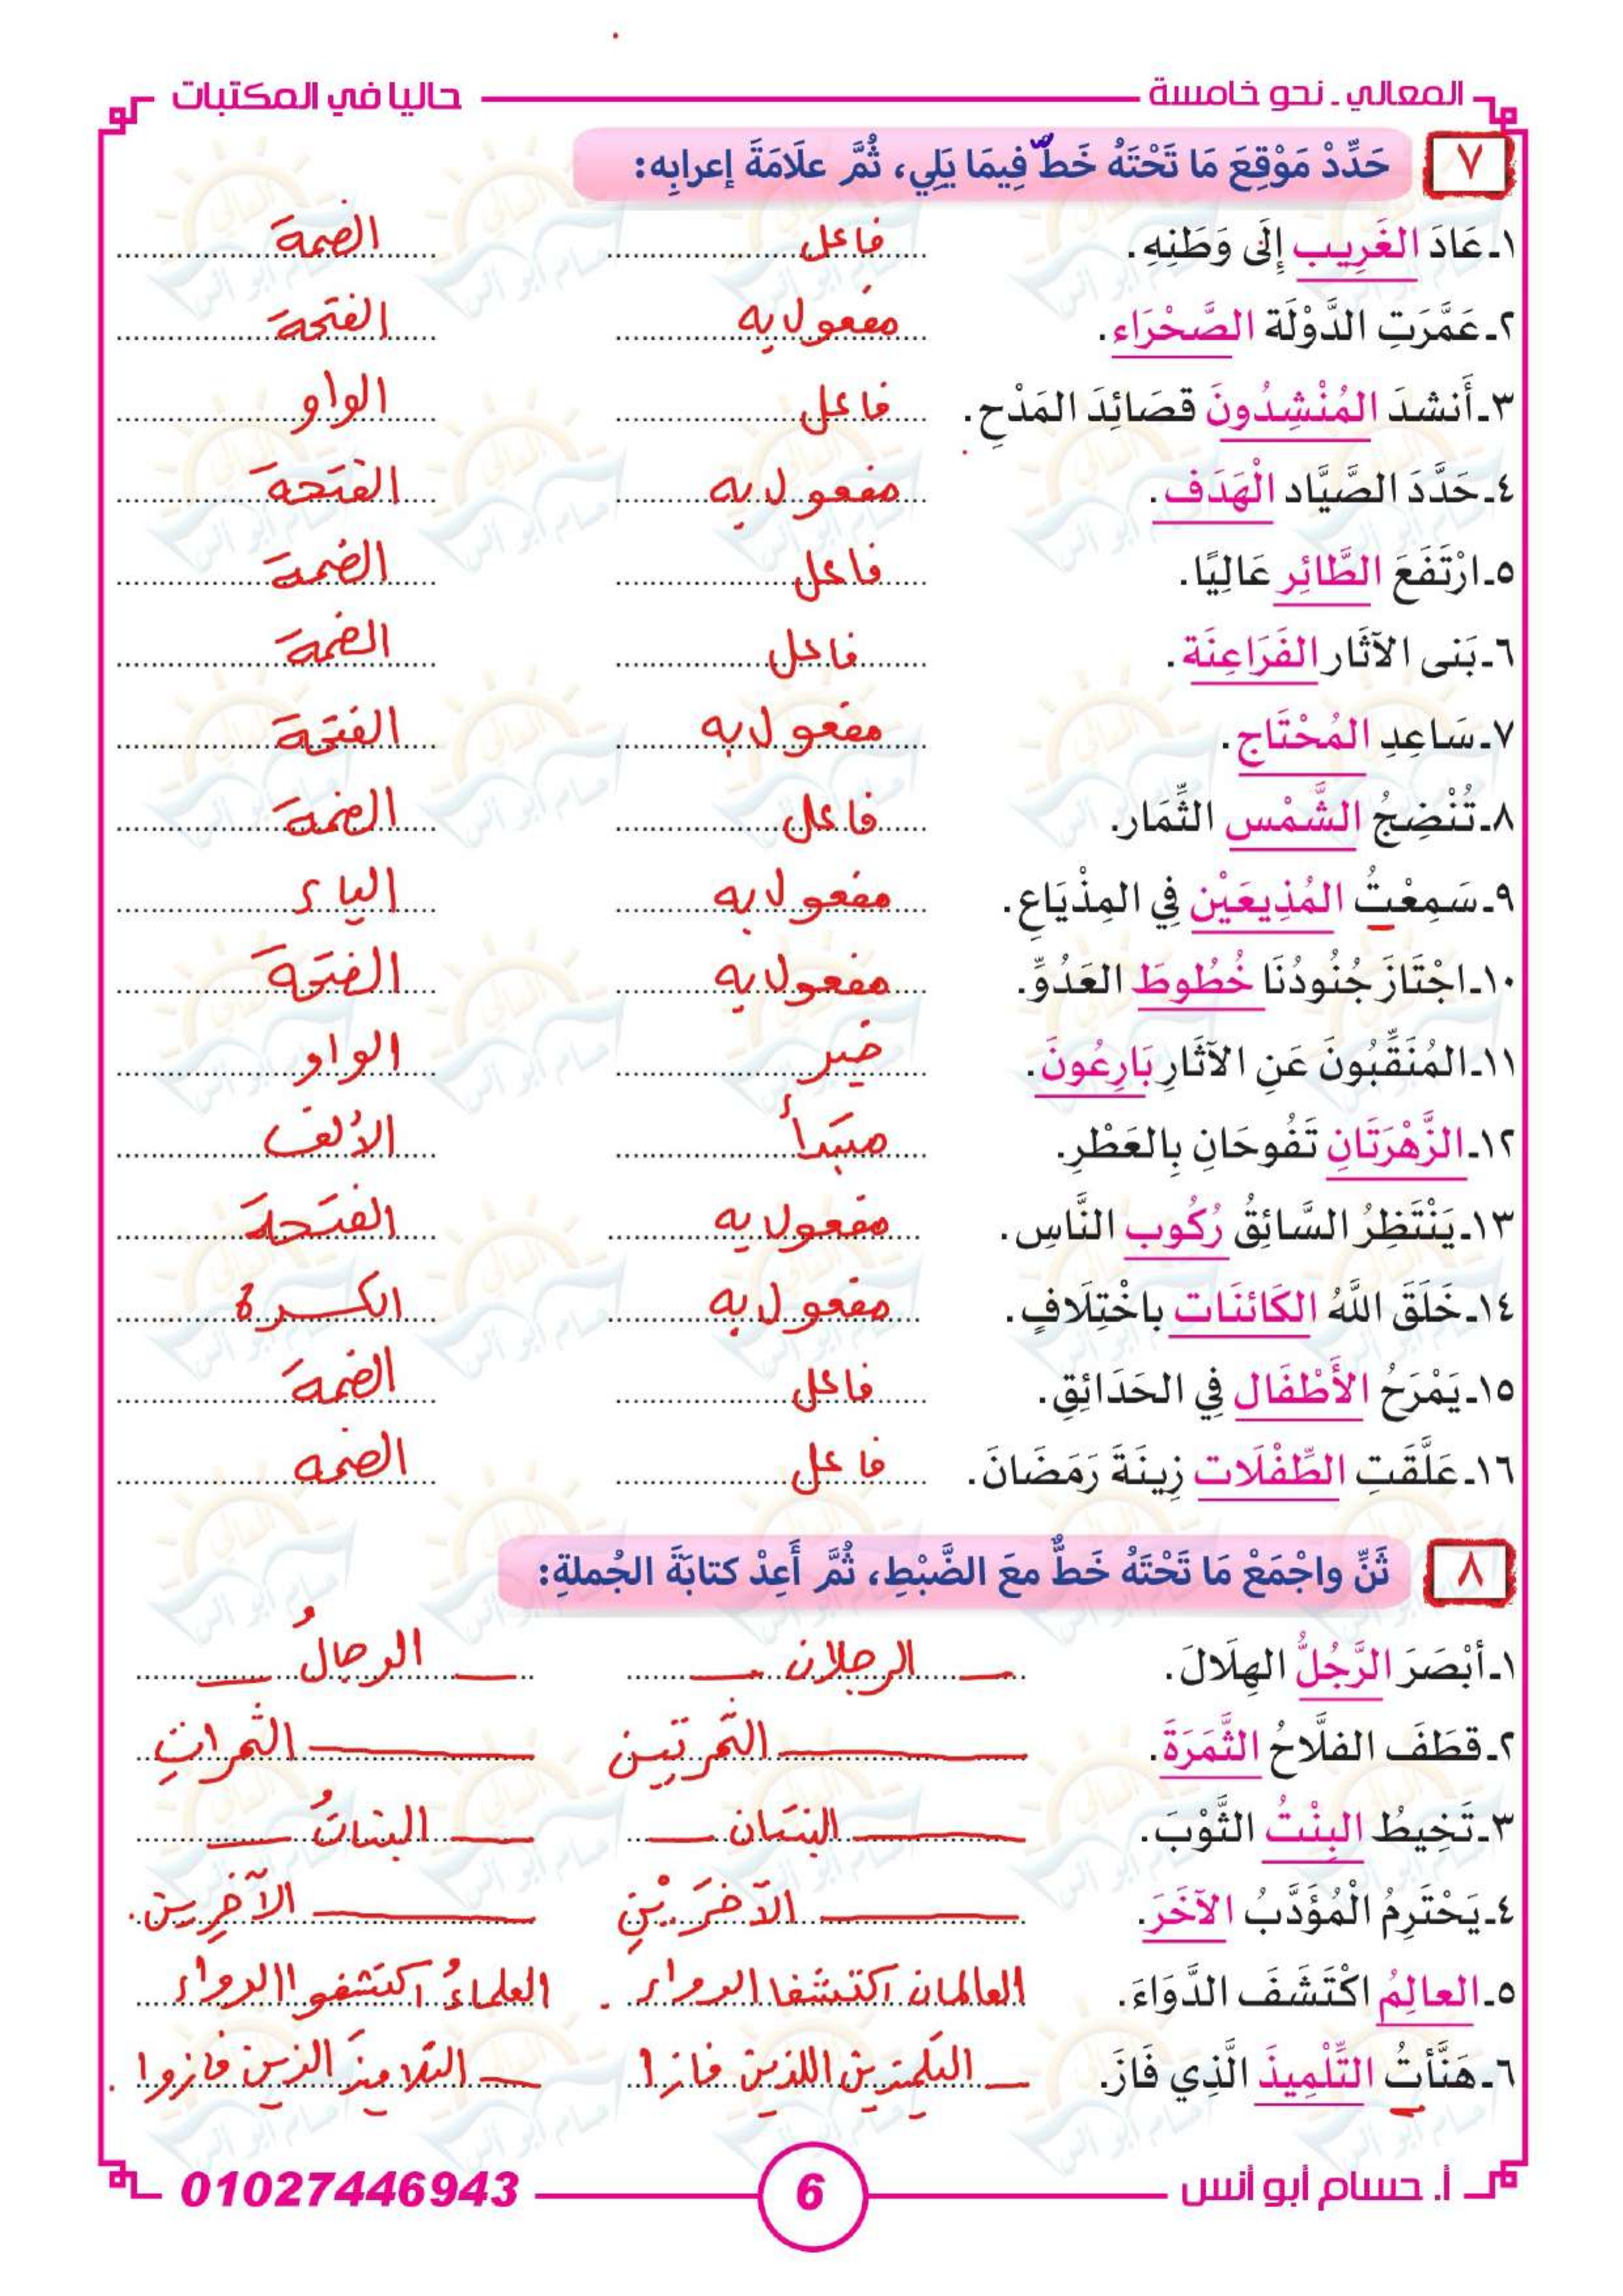 المعالي ـ نحو خامسة حاليا في المكتبات
٧ حَدِّدْ مَوْقِعَ مَا تَحْتَهُ خَطٌّ فِيمَا يَلِي، ثُمَّ علَامَةَ إعرابِه:
١ـ عَادَ الغَرِيب إِلَى وَطَنِهِ. فاعل الضمة
٢ـ عَمَّرَتِ الدَّوْلَة الصَّحْرَاء. مفعول به الفتحة
٣ـ أَنشدَ المُنْشِدُونَ قصَائِدَ المَدْحِ. فاعل الواو
٤ـ حَدَّدَ الصَّيَّاد الْهَدَف. مفعول به الفتحة
٥ـ ارْتَفَعَ الطَّائِر عَالِيًا. فاعل الضمة
٦ـ بَنى الآثَار الفَرَاعِنَة. فاعل الضمة
٧ـ سَاعِدِ المُحْتَاج. مفعول به الفتحة
٨ـ تُنْضِجُ الشَّمْس الثِّمَار. فاعل الضمة
٩ـ سَمِعْتُ المُذِيعَيْن فِي المِذْيَاعِ. مفعول به الياء
١٠ـ اجْتَازَ جُنُودُنَا خُطُوطَ العَدُوِّ. مفعول به الفتحة
١١ـ المُنَقِّبُونَ عَنِ الآثَارِ بَارِعُونَ. خبر الواو
١٢ـ الزَّهْرَتَانِ تَفُوحَانِ بِالعَطْرِ. مبتدأ الألف
١٣ـ يَنْتَظِرُ السَّائِقُ رُكُوب النَّاسِ. مفعول به الفتحة
١٤ـ خَلَقَ اللَّهُ الكَائنَات باخْتِلَافٍ. مفعول به الكسرة
١٥ـ يَمْرَحُ الأَطْفَال فِي الحَدَائِقِ. فاعل الضمة
١٦ـ عَلَّقَتِ الطِّفْلَات زِينَةَ رَمَضَانَ. فاعل الضمه
٨ ثَنِّ واجْمَعْ مَا تَحْتَهُ خَطٌّ معَ الضَّبْطِ، ثُمَّ أَعِدْ كتابَةَ الجُملةِ:
١ـ أبْصَرَ الرَّجُلُ الهِلَالَ. الرجلان الرجالُ
٢ـ قطَفَ الفلَّاحُ الثَّمَرَةَ. الثمرتين الثمراتِ
٣ـ تَخِيطُ البِنْتُ الثَّوْبَ. البنتان البناتُ
٤ـ يَحْتَرِمُ الْمُؤَدَّبُ الآخَرَ. الآخَرَيْنِ الآخرين.
٥ـ العالِمُ اكْتَشَفَ الدَّوَاءَ. العالمان اكتشفا الدواء. العلماءُ اكتشفوا الدواء
٦ـ هَنَّأتُ التِّلْمِيذَ الَّذِي فَازَ. التلميذين اللذين فازا. التلاميذَ الذين فازوا.
أ. حسام أبو أنس 6 01027446943